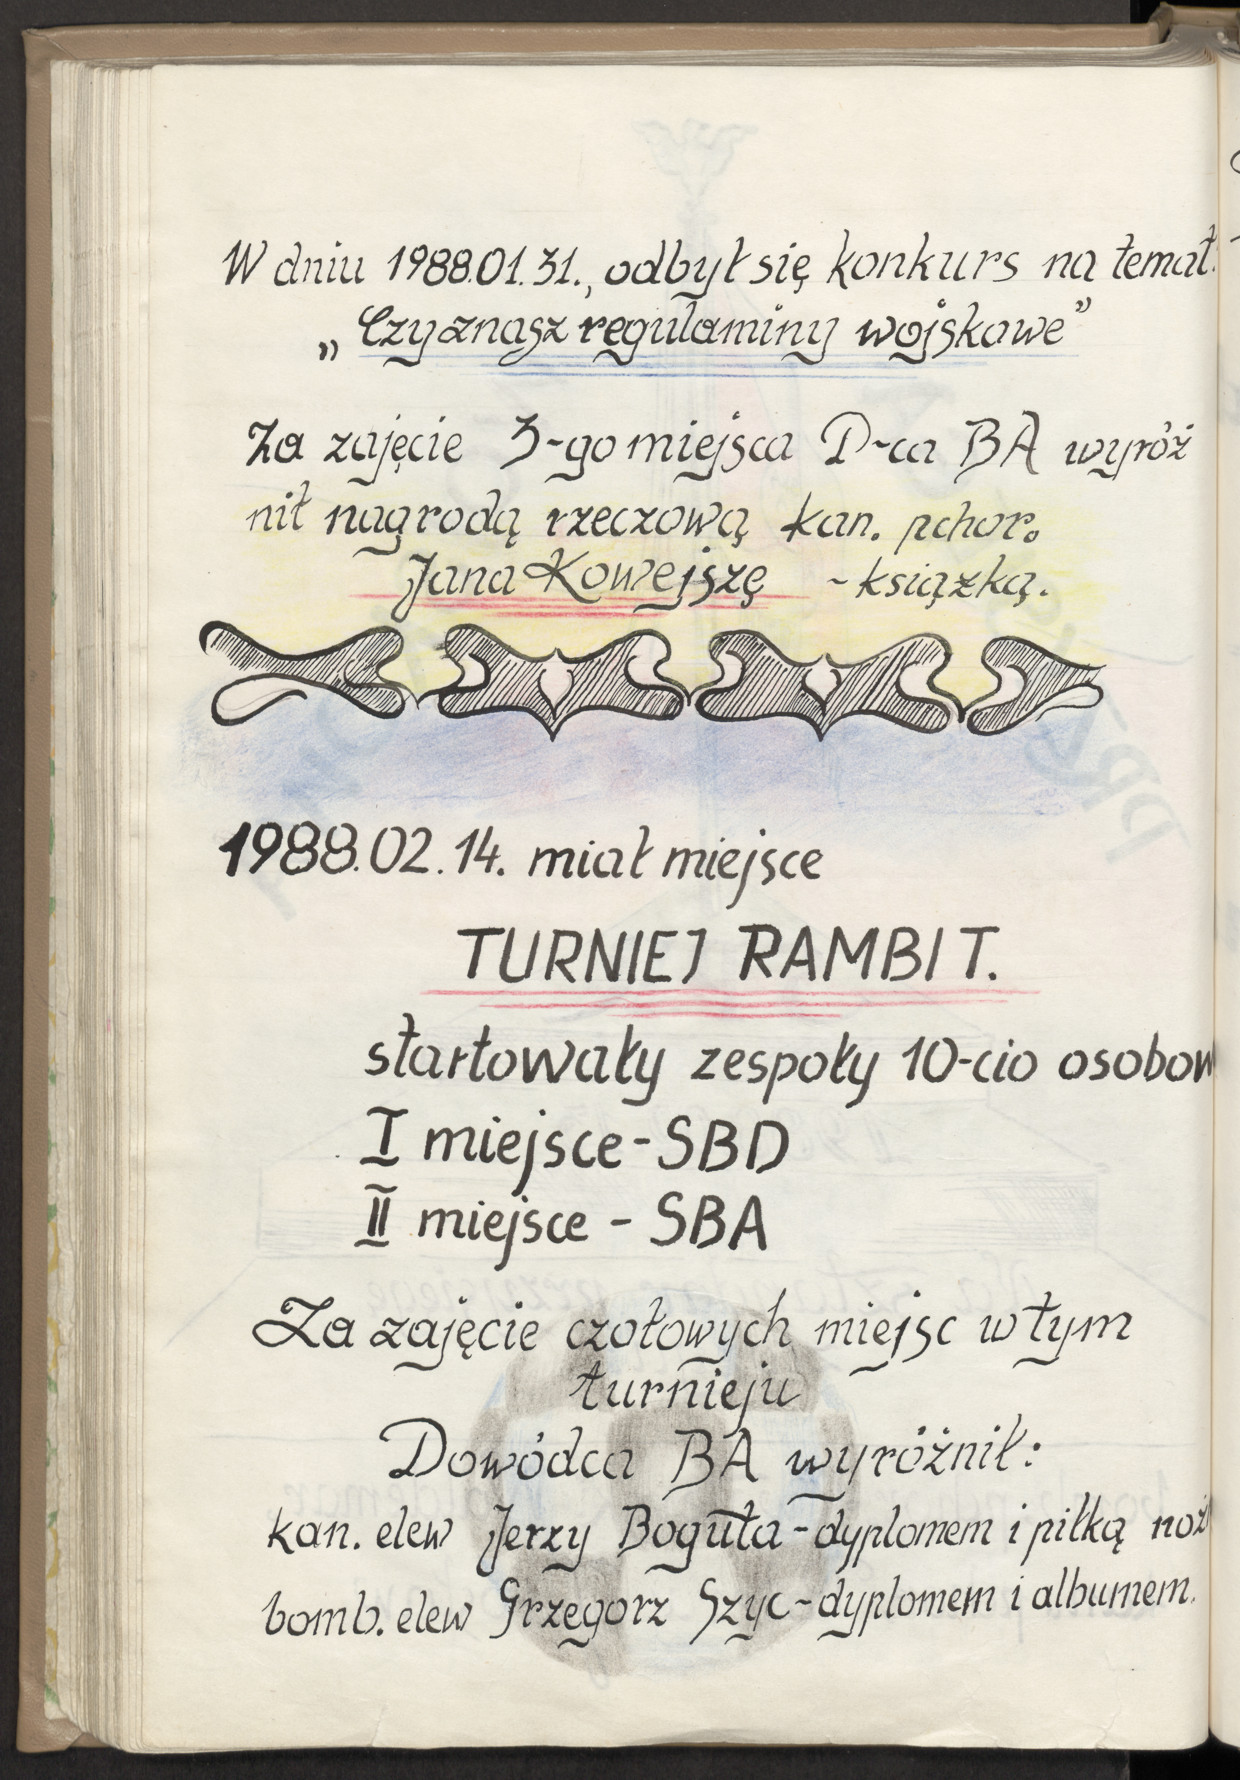 W dniu 1988.01.31., odbył się konkurs na temat:
„Czy znasz regulaminy wojskowe”
Za zajęcie 3-go miejsca D-ca BA wyróż
nił nagrodą rzeczową kan. pchor.
Jana Kowejszę - książką.
1988.02.14. miał miejsce
TURNIEJ RAMBIT.
startowały zespoły 10-cio osobow
I miejsce - SBD
II miejsce - SBA
Za zajęcie czołowych miejsc w tym
turnieju
Dowódca BA wyróżnił:
kan. elew Jerzy Boguta - dyplomem i piłką noż
bomb. elew Grzegorz Szyc - dyplomem i albumem.